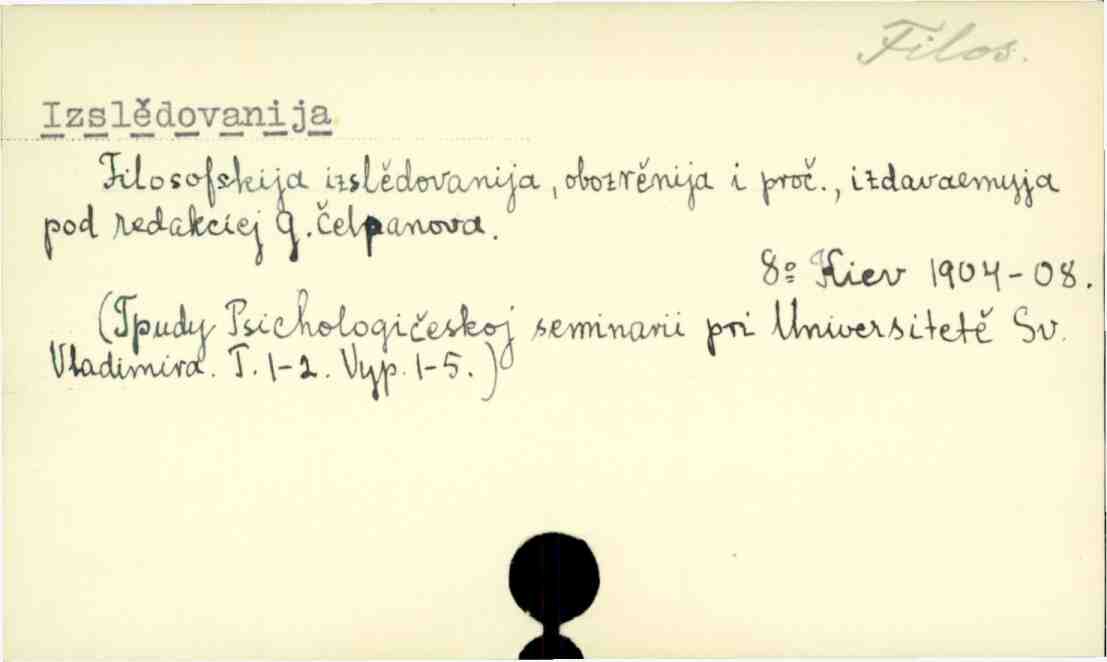 Filos.
Izslědovanija
Filosofskija izslědovanija, obozrěnija i proč., izdavaemyja
pod redakciej G. Čelpanova.
8º Kiev 1904-08.
(Tpudy Psichologičeskoj seminarii pri Universitetě Sv.
Vladimira. T. 1-2. Vyp. 1-5.)